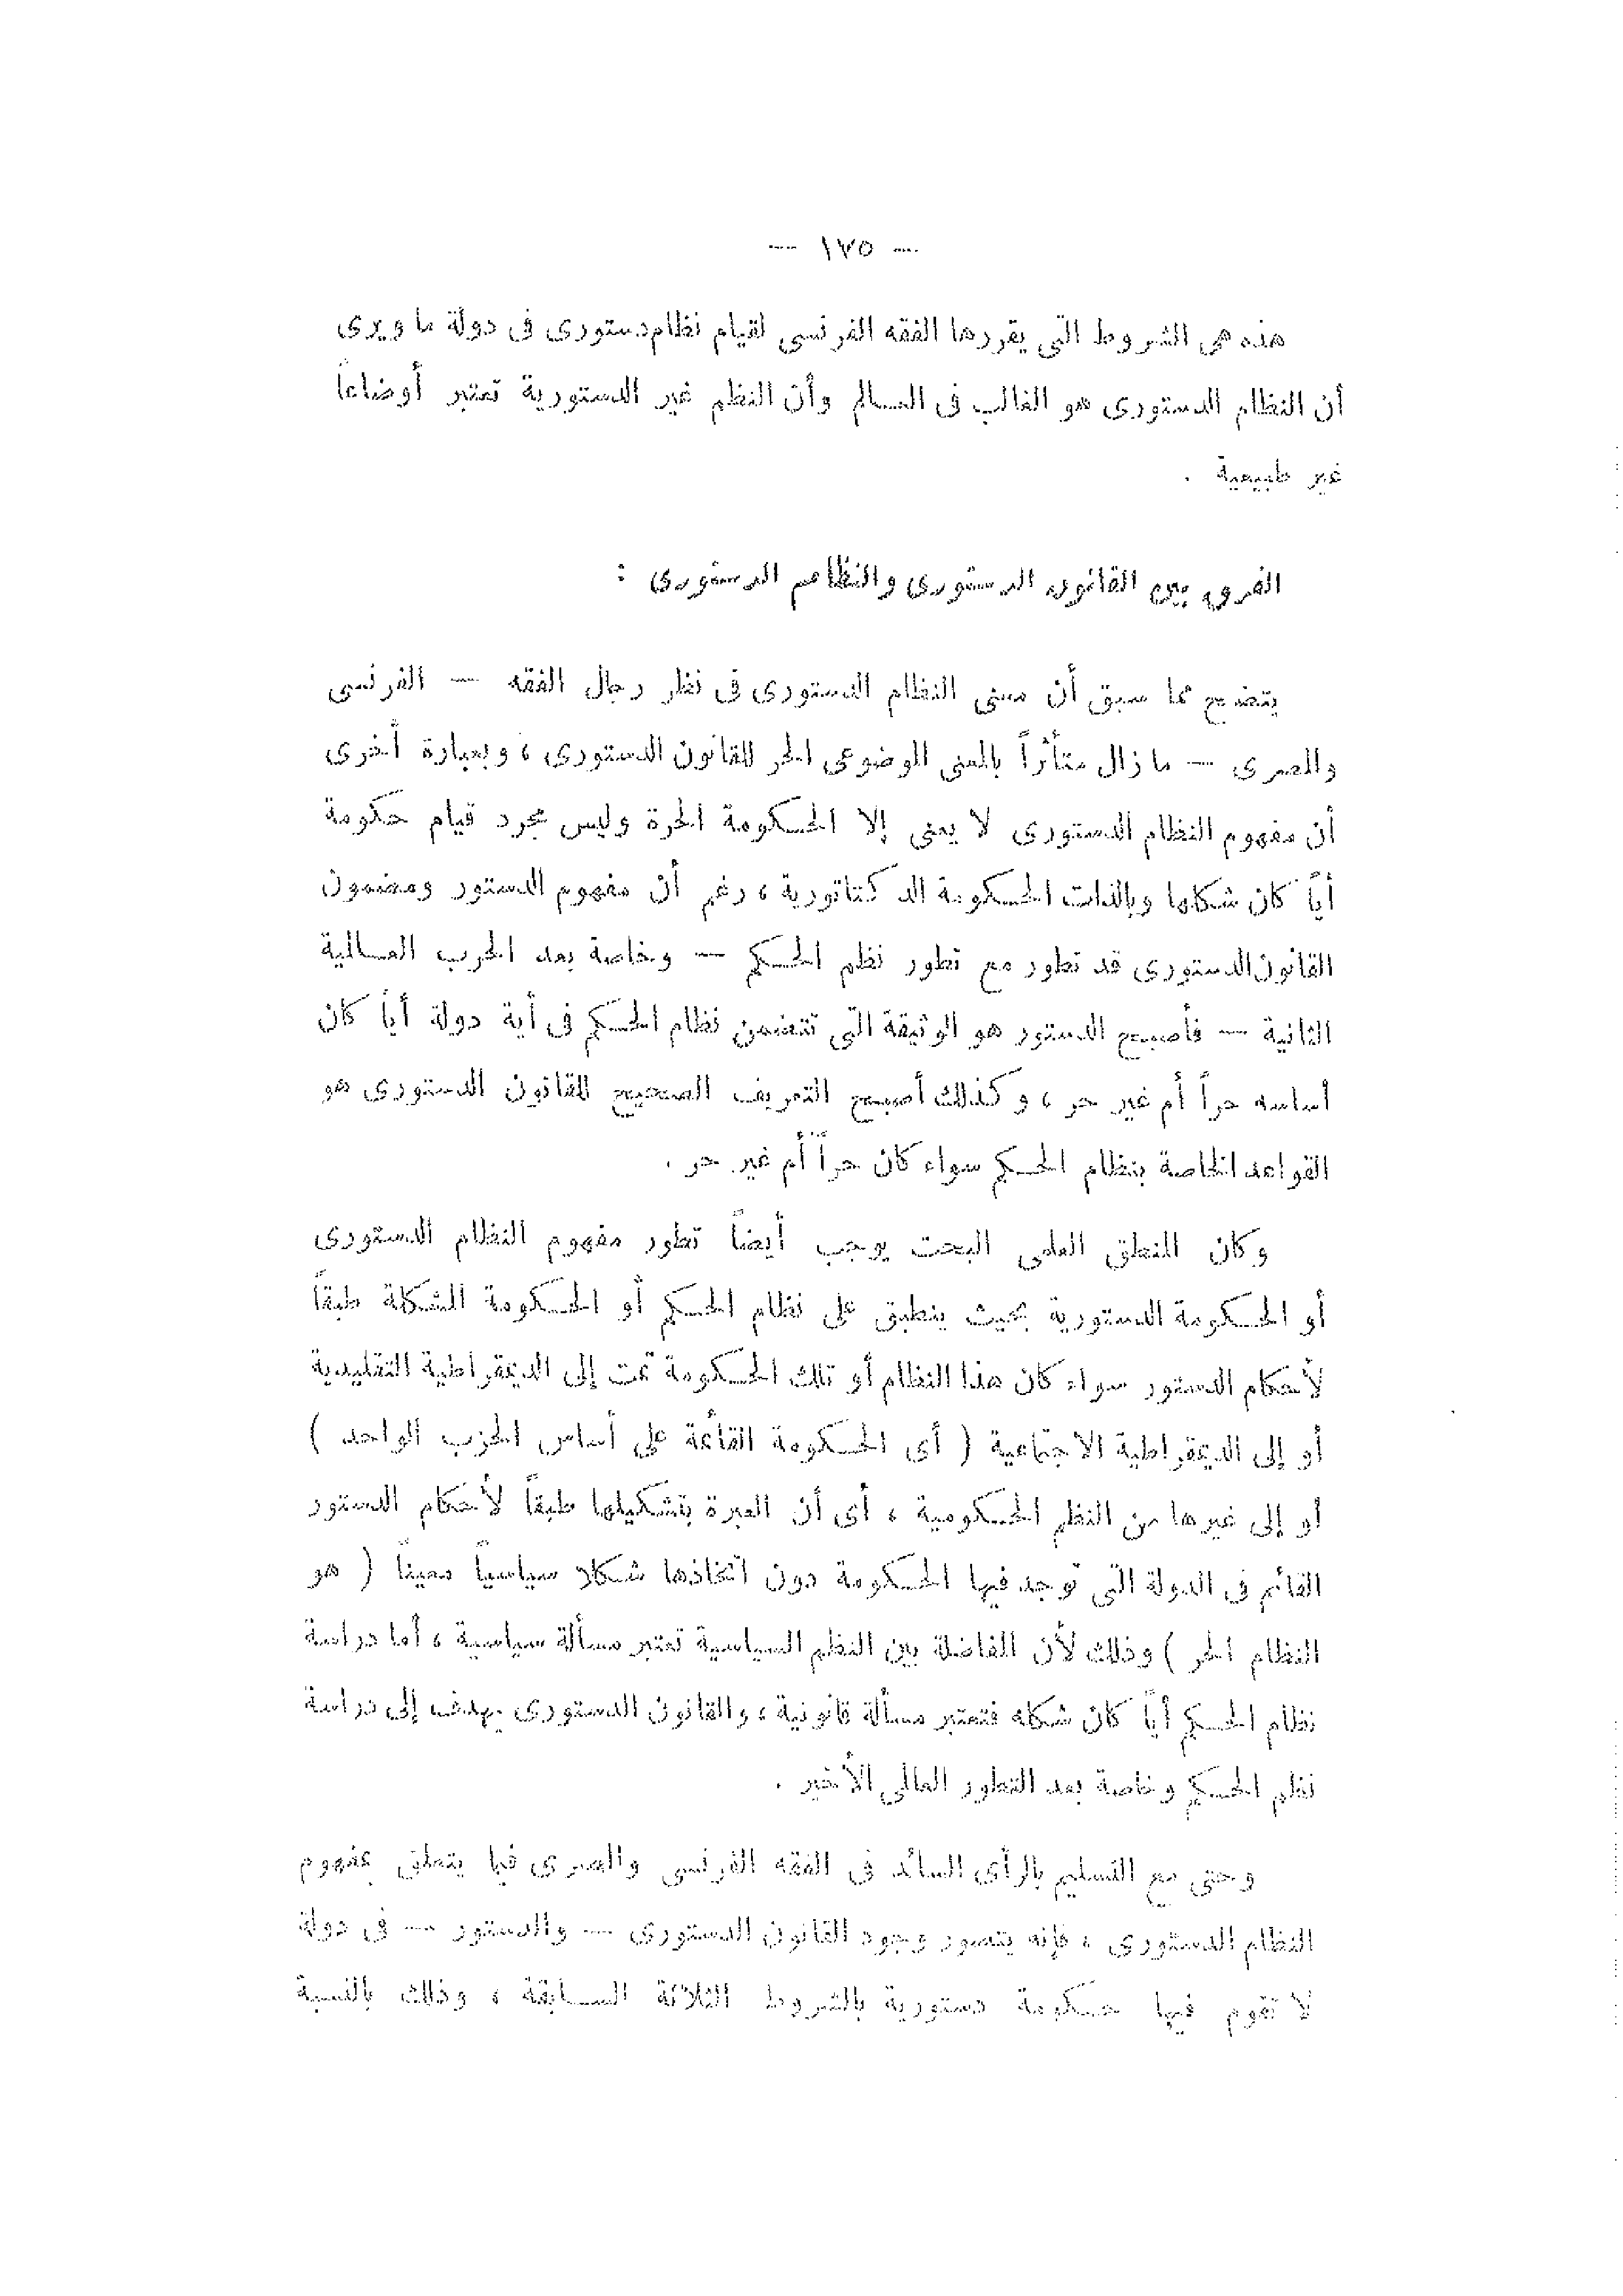 — ١٧٥ —
هذه هى الشروط التى يقررها الفقه الفرنسى لقيام نظام دستورى فى دولة ما ويرى
أن النظام الدستورى هو الغالب فى العالم وأن النظم غير الدستورية تعتبر أوضاعاً
غير طبيعية .
الفرق بين القانون الدستورى والنظام الدستورى :
يتضح مما سبق أن معنى النظام الدستورى فى نظر رجال الفقه — الفرنسى
والمصرى — ما زال متأثراً بالمعنى الموضوعى الحر للقانون الدستورى ، وبعبارة أخرى
أن مفهوم النظام الدستورى لا يعنى إلا الحكومة الحرة وليس مجرد قيام حكومة
أياً كان شكلها وبالذات الحكومة الدكتاتورية ، رغم أن مفهوم الدستور ومضمون
القانون الدستورى قد تطور مع تطور نظم الحكم — وخاصة بعد الحرب العالمية
الثانية — فأصبح الدستور هو الوثيقة التى تتضمن نظام الحكم فى أية دولة أياً كان
أساسه حراً أم غير حر ، وكذلك أصبح التعريف الصحيح للقانون الدستورى هو
القواعد الخاصة بنظام الحكم سواء كان حراً أم غير حر .
وكان المنطق العلمى البحت يوجب أيضاً تطور مفهوم النظام الدستورى
أو الحكومة الدستورية بحيث ينطبق على نظام الحكم أو الحكومة المشكلة طبقاً
لأحكام الدستور سواء كان هذا النظام أو تلك الحكومة تمت إلى الديمقراطية التقليدية
أو إلى الديمقراطية الاجتماعية ( أى الحكومة القائمة على أساس الحزب الواحد )
أو إلى غيرها من النظم الحكومية ، أى أن العبرة بتشكيلها طبقاً لأحكام الدستور
القائم فى الدولة التى توجد فيها الحكومة دون اتخاذها شكلا سياسياً معيناً ( هو
النظام الحر ) وذلك لأن المفاضلة بين النظم السياسية تعتبر مسألة سياسية ، أما دراسة
نظام الحكم أياً كان شكله فتعتبر مسألة قانونية ، والقانون الدستورى يهدف إلى دراسة
نظم الحكم وخاصة بعد التطور العالمى الأخير .
وحتى مع التسليم بالرأى السائد فى الفقه الفرنسى والمصرى فيما يتعلق بمفهوم
النظام الدستورى ، فإنه يتصور وجود القانون الدستورى — والدستور — فى دولة
لا تقوم فيها حكومة دستورية بالشروط الثلاثة السابقة ، وذلك بالنسبة